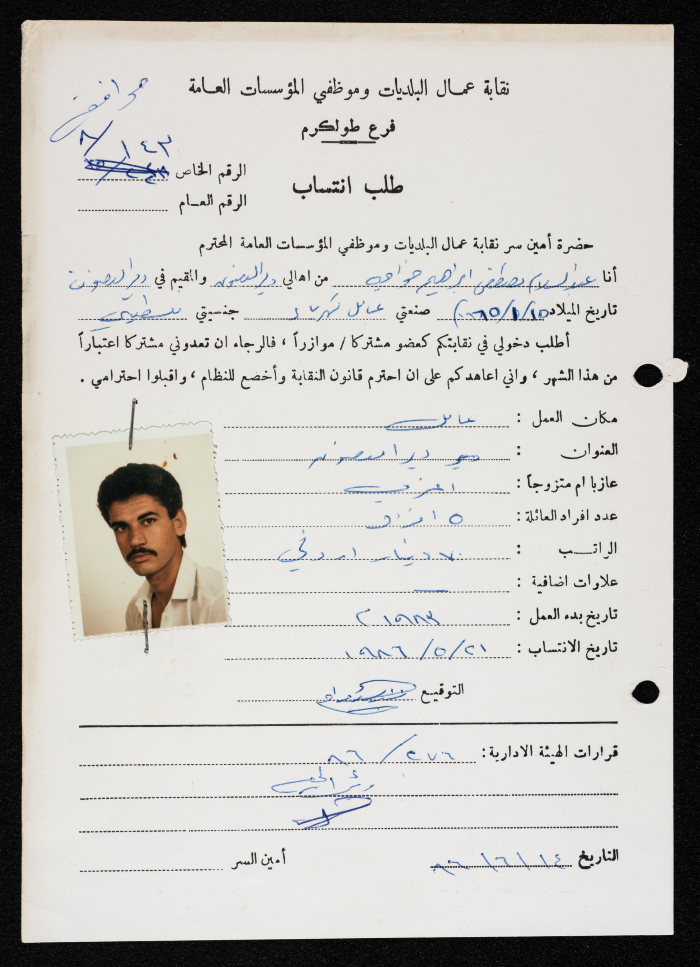 نقابة عمال البلديات وموظفي المؤسسات العامة
فرع طولكرم
٨/١٤٣
الرقم الخاص
طلب انتساب
الرقم العام
حضرة أمين سر نقابة عمال البلديات وموظفي المؤسسات العامة المحترم
أنا عبد السلام مصطفى ابراهيم من اهالي دير الغصون والمقيم في دير الغصون
تاريخ الميلاد صنعتي عامل كهرباء جنسيتي فلسطيني
أطلب دخولي في نقابتكم كعضو مشتركا / موازراً ، فالرجاء ان تعدوني مشتركا اعتباراً
من هذا الشهر ، واني اعاهدكم على ان احترم قانون النقابة وأخضع للنظام ، واقبلوا احترامي .
مكان العمل : عامل
العنوان : دير الغصون
عازبا ام متزوجاً : اعزب
عدد افراد العائلة : ٥ افراد
الراتب : ٧٠ دينار اردني
علاوات اضافية :
تاريخ بدء العمل : ١٩٨٣
تاريخ الانتساب : ٢١/٥/١٩٨٦
التوقيع
قرارات الهيئة الادارية : ٢٧٦/٨٦
التاريخ ١٤/٦/٨٦ أمين السر